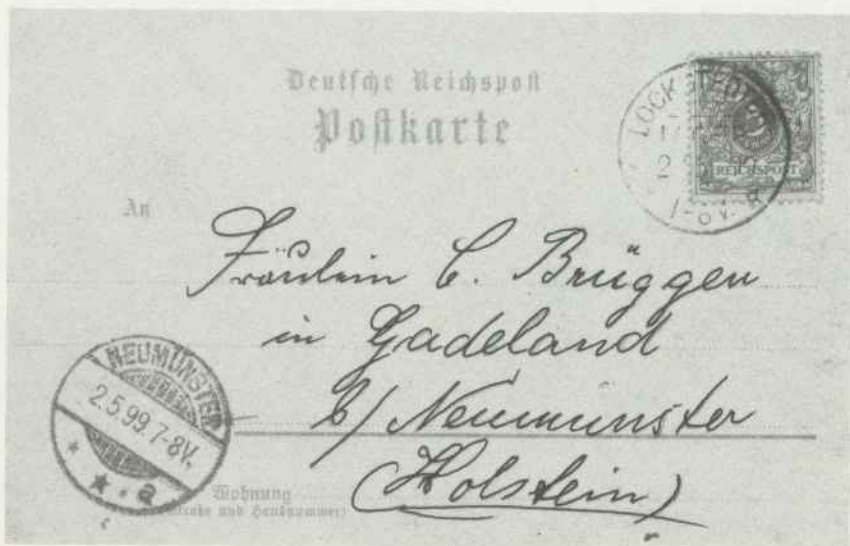 Deutsche Reichspost
Postkarte
LOCKSTEDTER
REICHSPOST
An
Fräulein C. Brüggen
in Gadeland
b/ Neumünster
(Holstein)
NEUMÜNSTER
2.5.99.7-8V.
* * a
Wohnung
(Straße und Hausnummer)